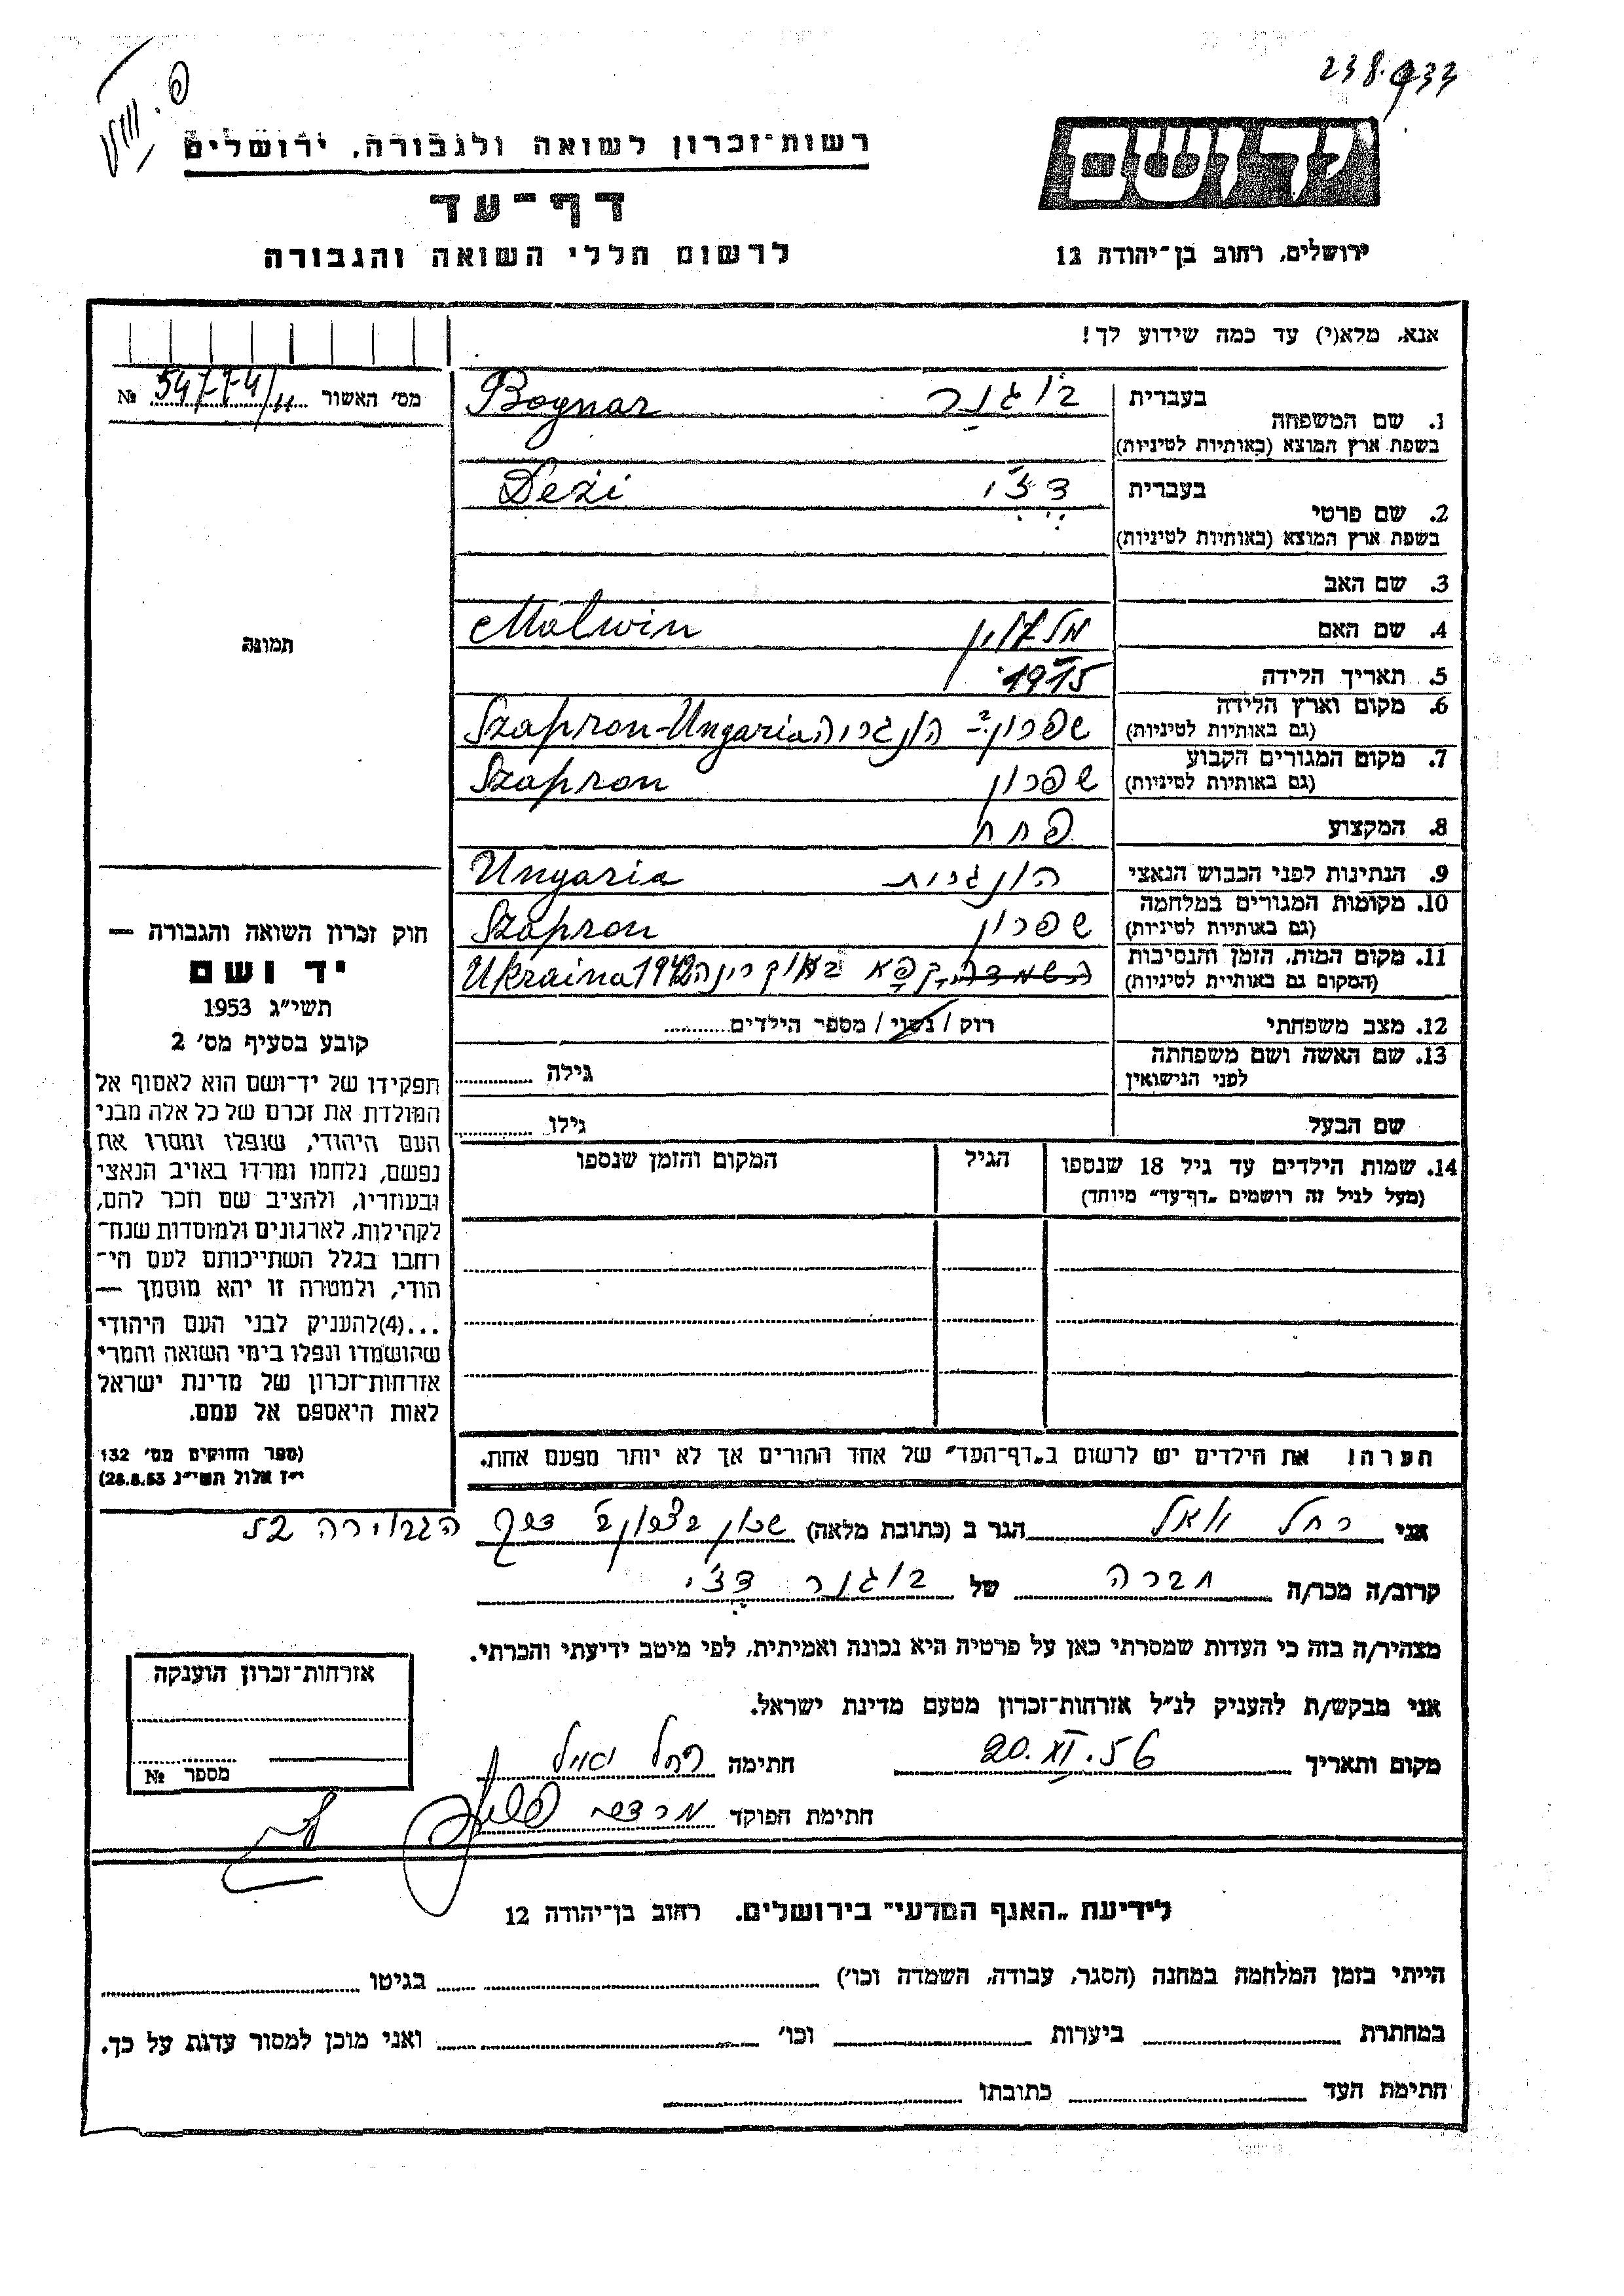 238.933
רשות־זכרון לשואה ולגבורה, ירושלים
יד ושם
דף־עד
לרשום חללי השואה והגבורה
ירושלים, רחוב בן־יהודה 12
אנא, מלא(י) עד כמה שידוע לך!
מס׳ האשור № 54774/
1. שם המשפחה
בעברית בוגנר
בשפת ארץ המוצא (באותיות לטיניות) Bognar
2. שם פרטי
בעברית דז׳י
בשפת ארץ המוצא (באותיות לטיניות) Deżi
3. שם האב
4. שם האם Malwin
5. תאריך הלידה 1915
6. מקום וארץ הלידה (גם באותיות לטיניות) שפרון - הונגריה Szapron-Ungaria
7. מקום המגורים הקבוע (גם באותיות לטיניות) שפרון Szapron
8. המקצוע פחח
9. הנתינות לפני הכבוש הנאצי הונגרית Ungaria
10. מקומות המגורים במלחמה (גם באותיות לטיניות) שפרון Szapron
11. מקום המות, הזמן והנסיבות (המקום גם באותיית לטיניות) קפא באוקריינה Ukraina 1942
12. מצב משפחתי רוק / נשוי / מספר הילדים
13. שם האשה ושם משפחתה לפני הנישואין גילה
שם הבעל גילו
14. שמות הילדים עד גיל 18 שנספו
(מעל לגיל זה רושמים „דף־עד״ מיוחד)
הגיל
המקום והזמן שנספו
תמונה
חוק זכרון השואה והגבורה —
יד ושם
תשי״ג 1953
קובע בסעיף מס׳ 2
תפקידו של יד־ושם הוא לאסוף אל
המולדת את זכרם של כל אלה מבני
העם היהודי, שנפלו ומסרו את
נפשם, נלחמו ומרדו באויב הנאצי
ובעוזריו, ולהציב שם וזכר להם,
לקהילות, לארגונים ולמוסדות שנח־
רחבו בגלל השתייכותם לעם הי־
הודי, ולמטרה זו יהא מוסמך —
...(4)להעניק לבני העם היהודי
שהושמדו ונפלו בימי השואה והמרי
אזרחות־זכרון של מדינת ישראל
לאות היאספם אל עמם.
(ספר החוקים מס׳ 132
י״ז אלול תשי״ג 28.8.53)
הערה! את הילדים יש לרשום ב„דף־העד״ של אחד ההורים אך לא יותר מפעם אחת.
אני רחל הגר ב (כתובת מלאה) שכון דרך הגבורה 52
קרוב/ה מכר/ה חברה של בוגנר דז׳י
מצהיר/ה בזה כי העדות שמסרתי כאן על פרטיה היא נכונה ואמיתית, לפי מיטב ידיעתי והכרתי.
אני מבקש/ת להעניק לנ״ל אזרחות־זכרון מטעם מדינת ישראל.
מקום ותאריך 20.XI.56 חתימה רחל
חתימת הפוקד
אזרחות־זכרון הוענקה
מספר №
לידיעת „האגף המדעי״ בירושלים, רחוב בן־יהודה 12
הייתי בזמן המלחמה במחנה (הסגר, עבודה, השמדה וכו׳) בגיטו
במחתרת ביערות וכו׳ ואני מוכן למסור עדות על כך.
חתימת העד כתובתו